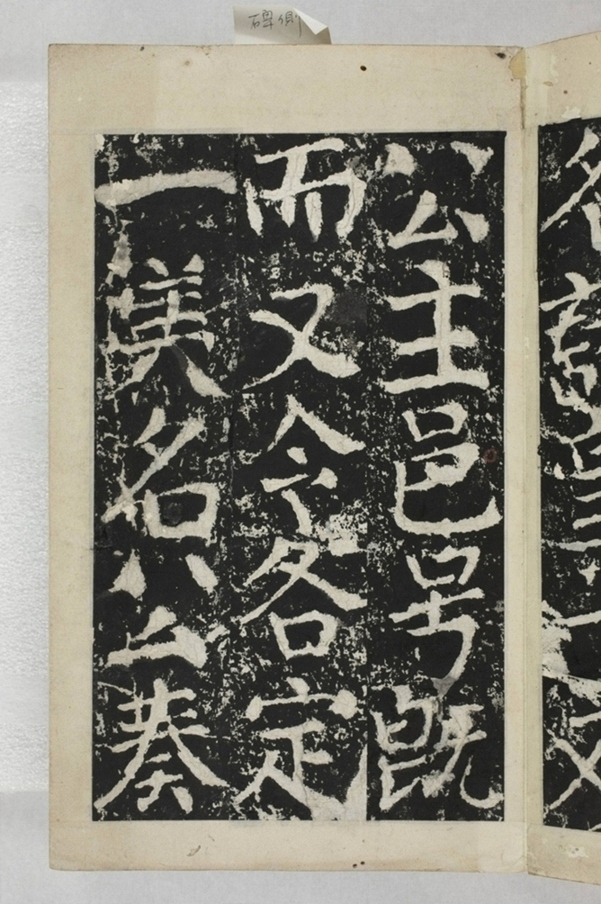 碑側
公主邑号既
而又令各定
一媄名公奏